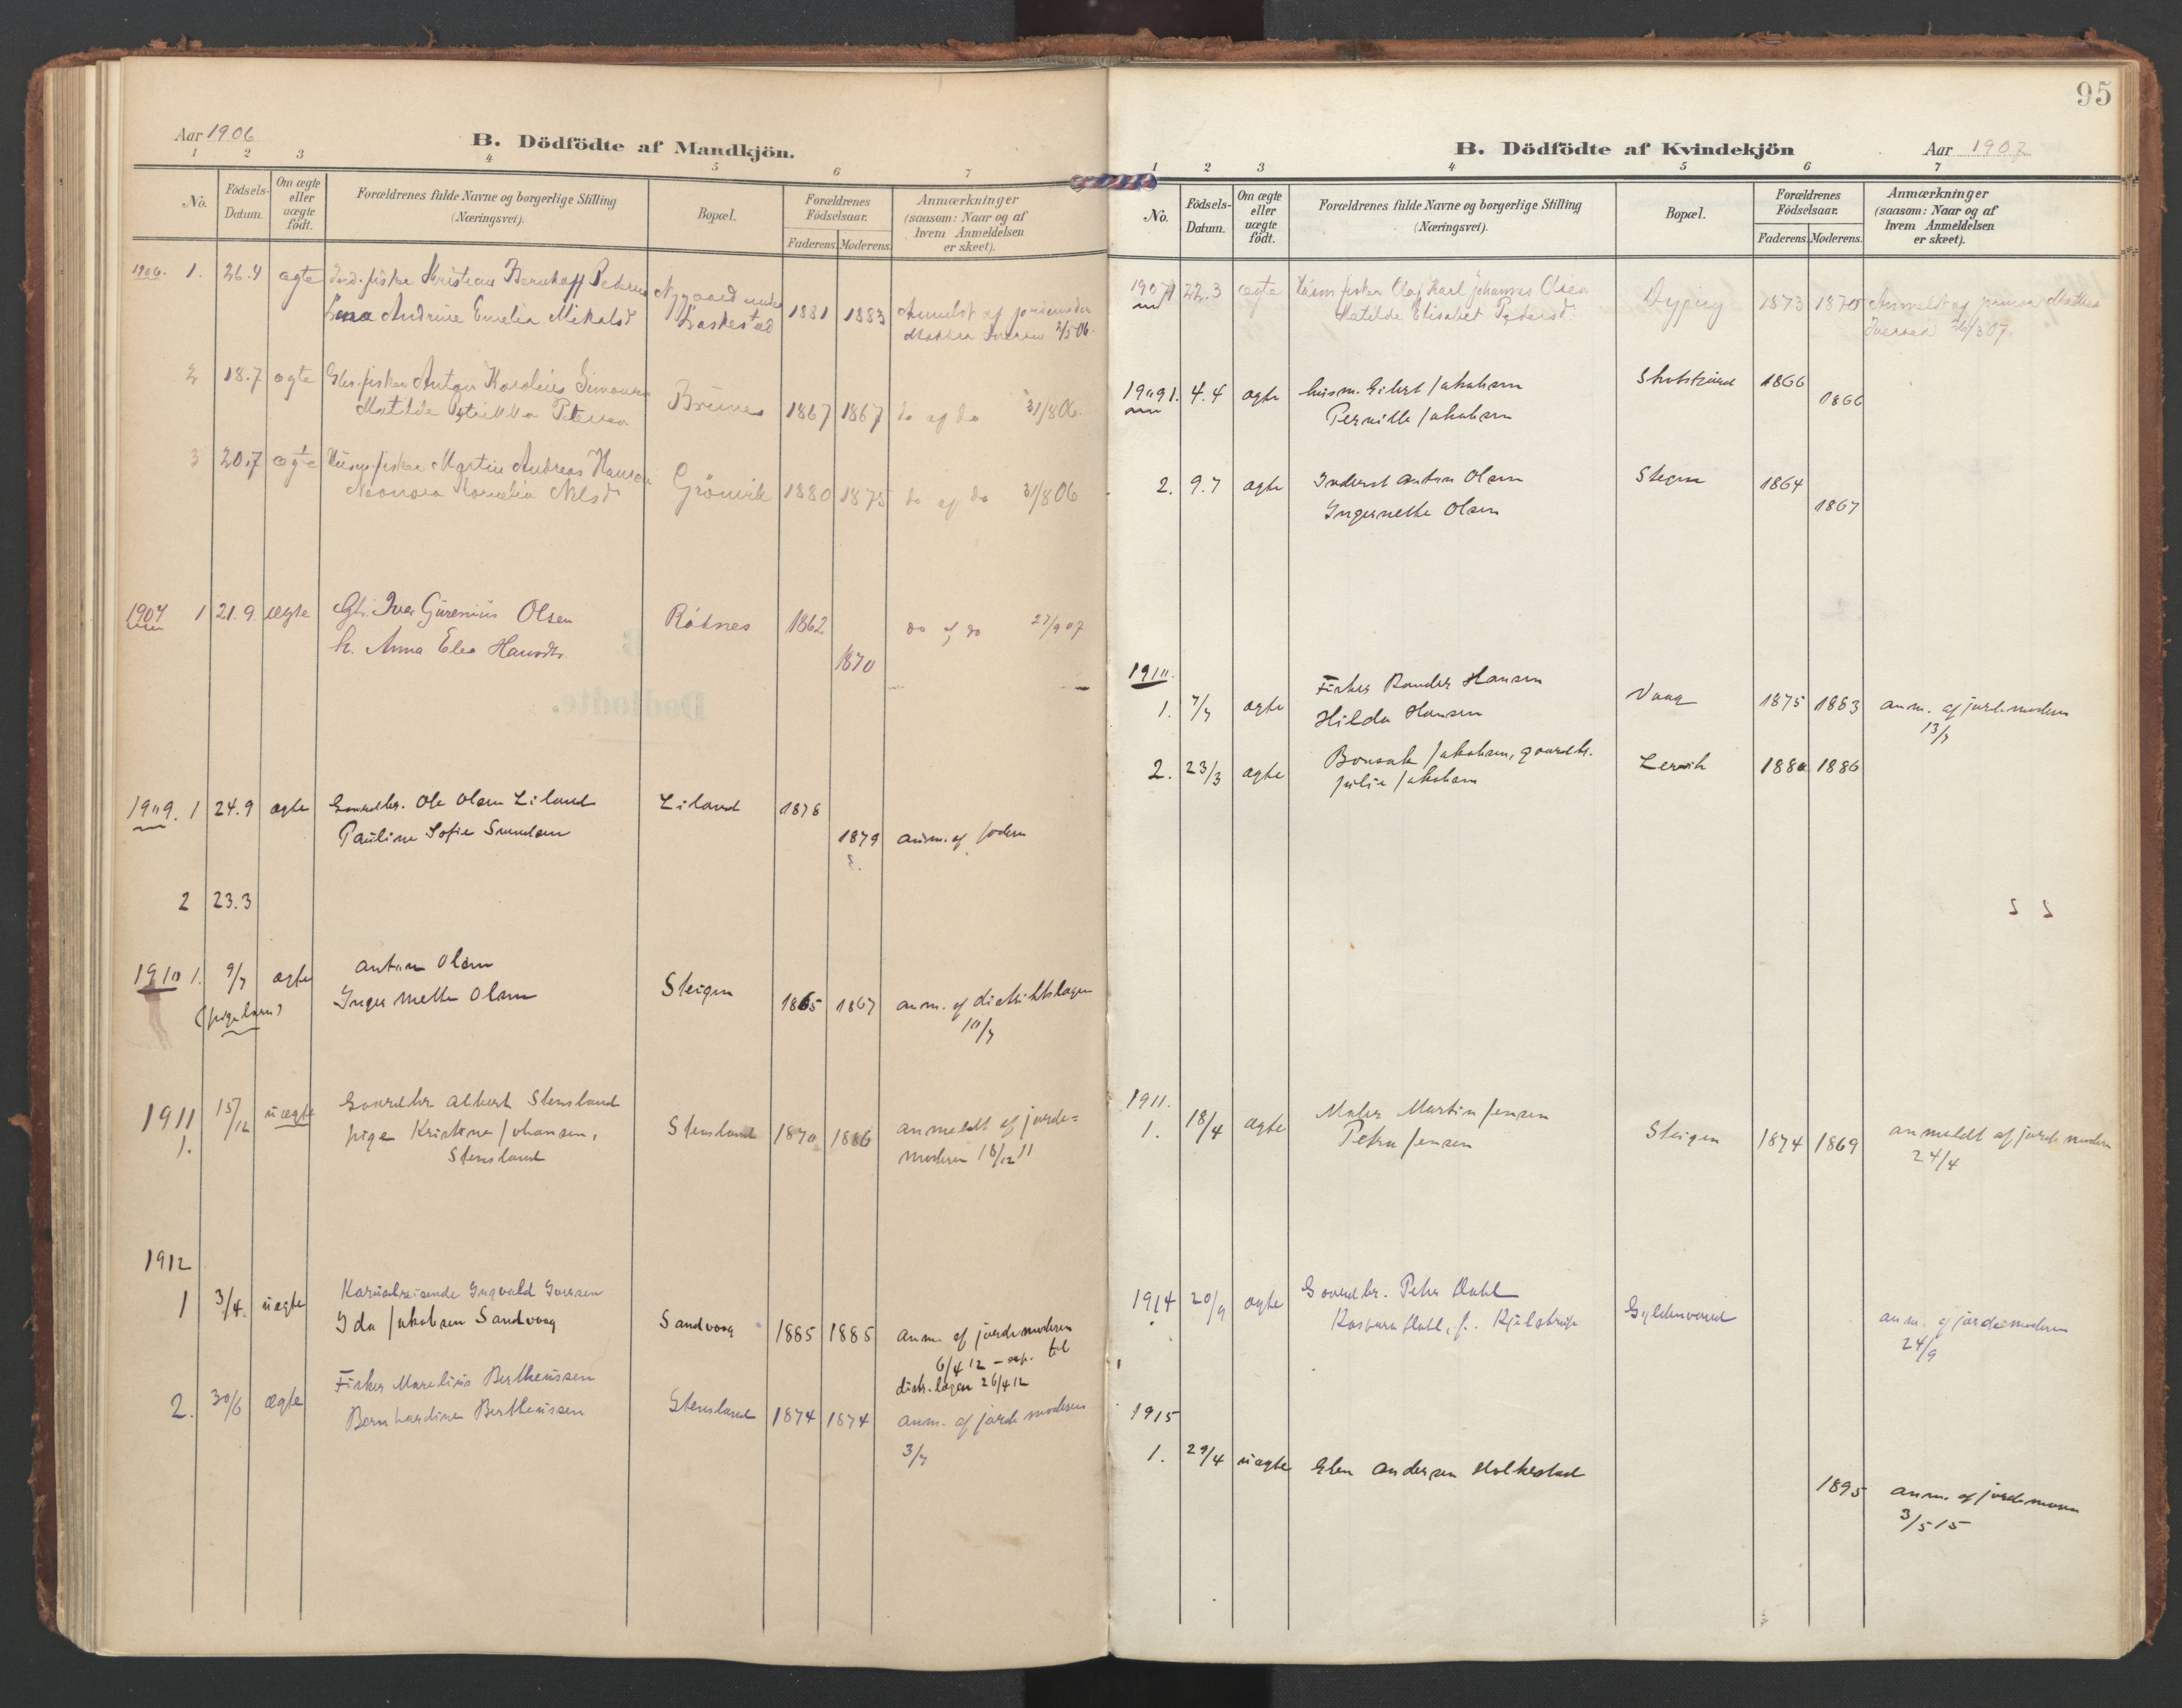 Aar 1906
B. Dödfödte af Mandkjön.
1 2 3 4 5 6 7
No.
Födsels-Datum.
Om ægte eller uægte födt.
Forældrenes fulde Navne og borgerlige Stilling (Næringsvei).
Bopæl.
Forældrenes Födselsaar.
Faderens. Moderens.
Anmærkninger (saasom: Naar og af hvem Anmeldelsen er skeet).
1906. 1. 26.4 ægte Kristian Pedersen
Andrine Emelia Mikalsd
Laskestad 1881 1883 Anmeldt af jordemoder
2/5 06.
2 18.7 ægte fisker Anton
Matilde
Brines 1867 1867 do af do 31/8 06.
3 20.7 ægte fisker Martin Andreas Hansen
Nelsd
Grönvik 1880 1875 do af do 31/8 06
1907 1 21.9. ægte Olsen
h. Anna Elea Hansdtr.
Röknes 1862
1870
do af do 27/9 07
1909. 1 24.9 ægte Gaardbr. Ole Olsen Liland
Pauline Sofie
Liland 1878
1879 anm. af
2 23.3
1910 1. 9/7 ægte Anton Olsen
(pigebarn) Inger Mette Olsen
Steigen 1865 1867 anm. af distriktslægen
10/7
1911 15/12 uægte Gaardbr Albert Stensland
1. pige Kristine Johansen,
Stensland
Stensland 1870 1886 anmeldt af jorde=
moderen 18/12 11
1912
1 3/4. uægte Ingvald Iversen
Ida Jakobsen Sandvaag
Sandvaag 1885 1885 anm. af jordemoderen
6/4 12 til
distr.lægen 26/4 12
2. 30/6 ægte Fisker Marelius Bertheussen
Bernhardine Bertheussen
Stensland 1874 1874 anm. af jordemoderen
3/7
95
B. Dödfödte af Kvindekjön
Aar 1907
1 2 3 4 5 6 7
No.
Födsels-Datum.
Om ægte eller uægte födt.
Forældrenes fulde Navne og borgerlige Stilling (Næringsvei).
Bopæl.
Forældrenes Födselsaar.
Faderens. Moderens.
Anmærkninger (saasom: Naar og af hvem Anmeldelsen er skeet).
1907 1 22.3 ægte Husm fisker Olaf Karl Johannes Olsen
Matilde Elisabet Pedersd.
1873 1870 Anmeldt af
Iversen 26/3 07.
1909 1. 4.4 ægte husm. Eilert Jakobsen
Pernille Jakobsen
1866
1866
2. 9.7 ægte Inderst Anton Olsen
Ingermette Olsen
Stegen 1864
1867
1910.
1. 7/7 ægte Fisker Hansen
Hilda Hansen
Vaag 1875 1883 anm. af jordemoderen
13/7
2. 23/3 ægte Bonsak Jakobsen, gaardbr.
Julie Jakobsen
Lervik 1880 1886
1911.
1. 18/4 ægte Maler Martin Jensen
Petra Jensen
Steigen 1874 1869 anmeldt af jordemoderen
24/4
1914 20/9 ægte Gaardbr. Peder Dahl
Kaspara Dahl, f.
anm. af jordemoderen
24/9
1915
1. 29/4 uægte Andersen Holkestad
1895 anm. af
3/5 15